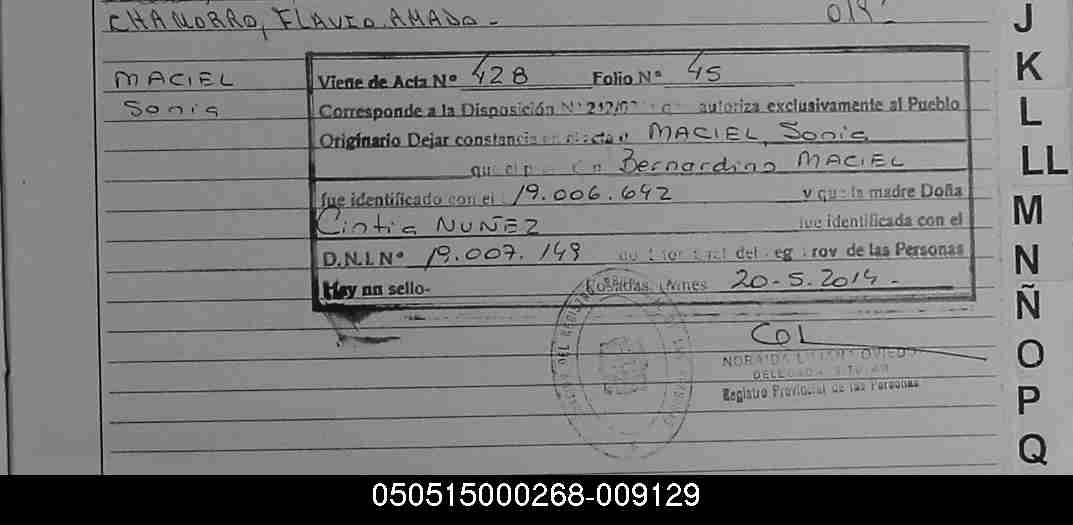 CHAMORRO, FLAVIO AMADO -
J
K
L
LL
M
N
Ñ
O
P
Q
MACIEL
Sonia
Viene de Acta Nº 428 Folio Nº 45
Corresponde a la Disposición autoriza exclusivamente al Pueblo
Originario Dejar constancia MACIEL, Sonia
Bernardino MACIEL
fue identificado con el 19.006.642 y que la madre Doña
Cintia NUÑEZ fue identificada con el
D.N.I. Nº 19.007.149 de las Personas
Hay un sello- Posadas, 20-5-2014-
COL
NORAIDA OVIEDO
DELEGADA TITULAR
Registro Provincial de las Personas
050515000268-009129